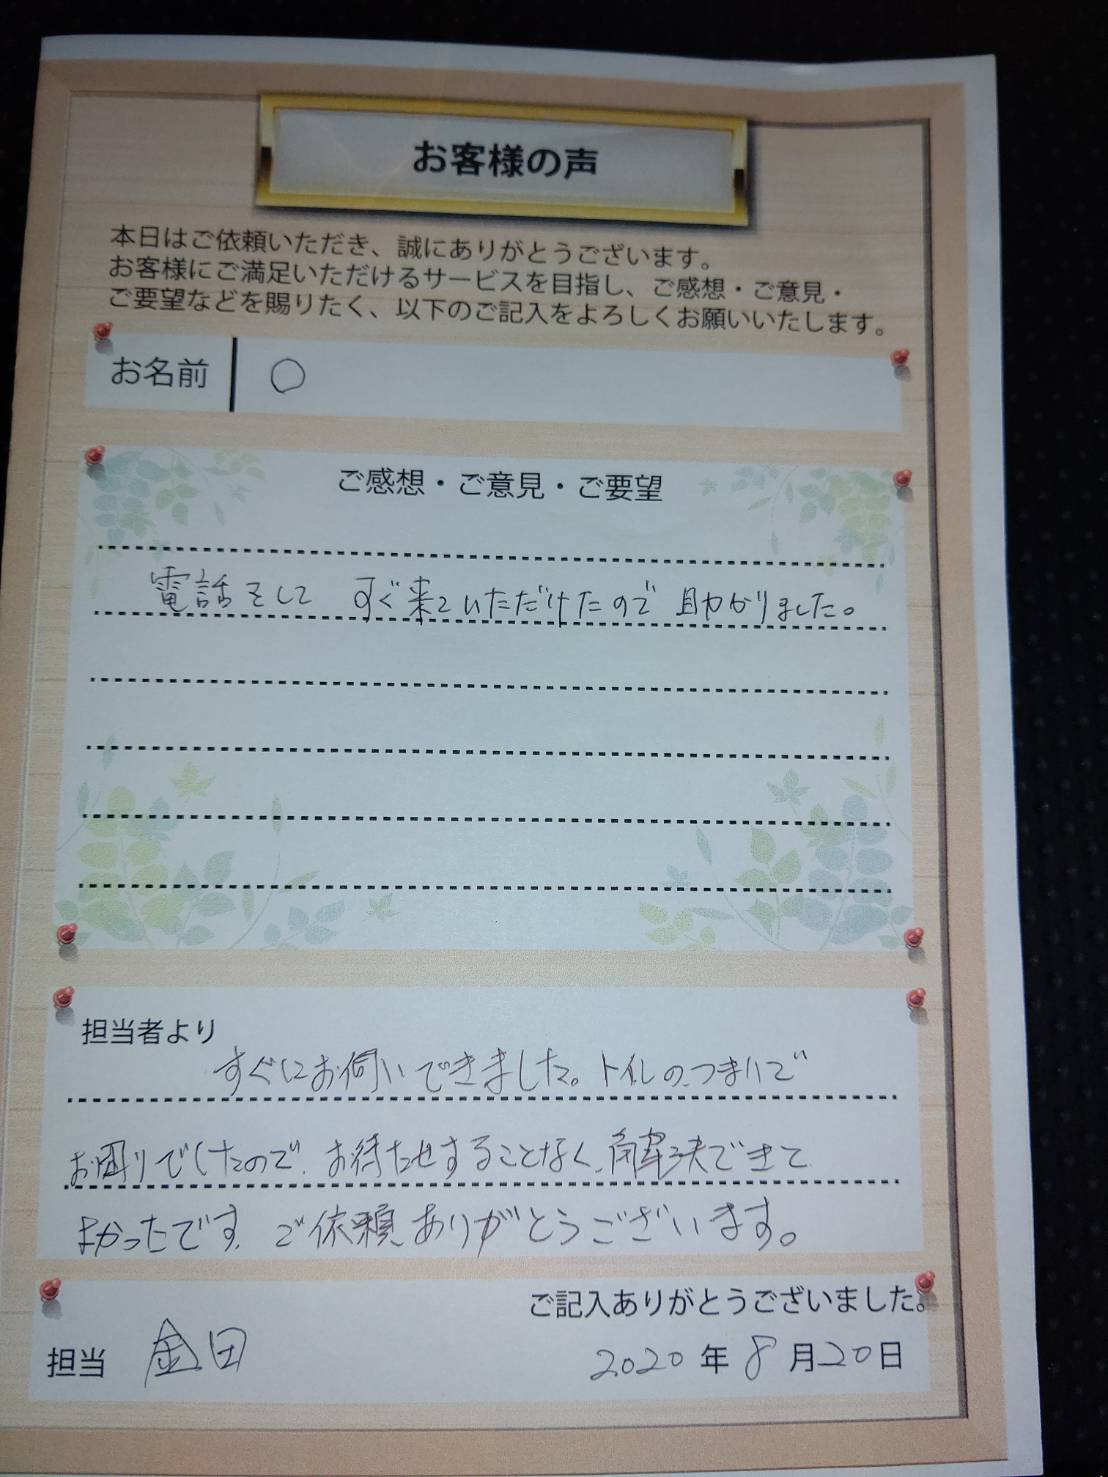 お客様の声
本日はご依頼いただき、誠にありがとうございます。
お客様にご満足いただけるサービスを目指し、ご感想・ご意見・
ご要望などを賜りたく、以下のご記入をよろしくお願いいたします。
お名前 〇
ご感想・ご意見・ご要望
電話をして すぐ来ていただけたので 助かりました。
担当者より
すぐにお伺いできました。トイレのつまりで
お困りでしたので、お待たせすることなく、解決できて
よかったです。ご依頼ありがとうございます。
ご記入ありがとうございました。
担当 金田 2020年8月20日